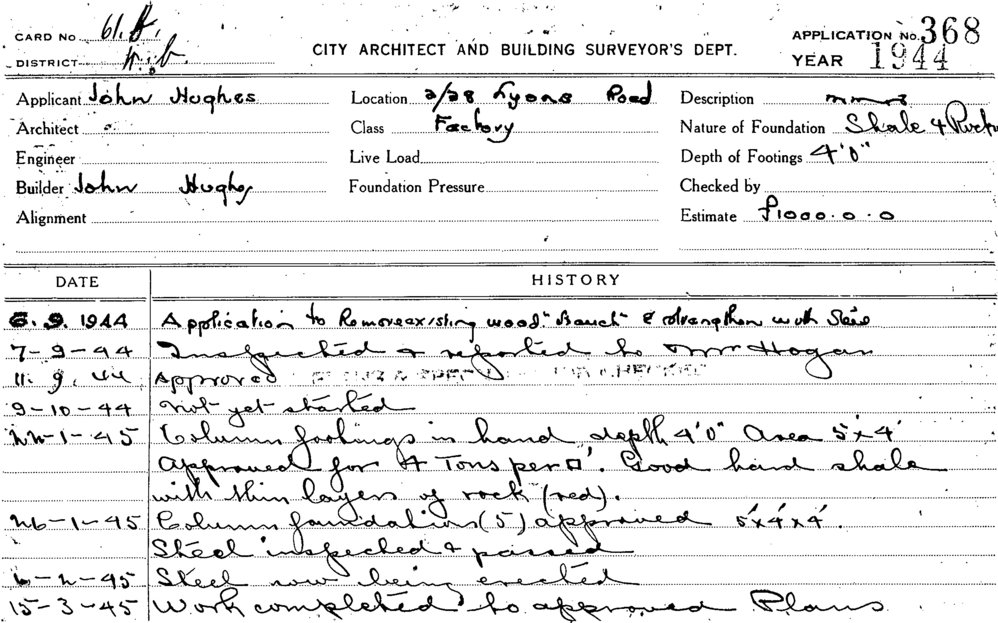 CARD No 61.A.
DISTRICT
CITY ARCHITECT AND BUILDING SURVEYOR'S DEPT.
APPLICATION No. 368
YEAR 1944
Applicant John Hughes
Architect
Engineer
Builder John Hughes
Alignment
Location 2/28 Lyons Road
Class Factory
Live Load
Foundation Pressure
Description
Nature of Foundation Shale & Rock
Depth of Footings 4'0"
Checked by
Estimate £1000.0.0
DATE HISTORY
6.9.1944 Application to Remove existing wood & strengthen with Steel
7-9-44 Inspected & reported to Mr Hogan
11.9.44 Approved
9-10-44 Not yet started
22-1-45 Column footings in hand depth 4'0" Area 5'x4'
Approved for 4 Tons per □'. Good hard shale
with thin layers of rock (red).
26-1-45 Column foundations (5) approved 5'x4'x4'.
Steel inspected & passed
6-2-45 Steel now being erected
15-3-45 Work completed to approved Plans